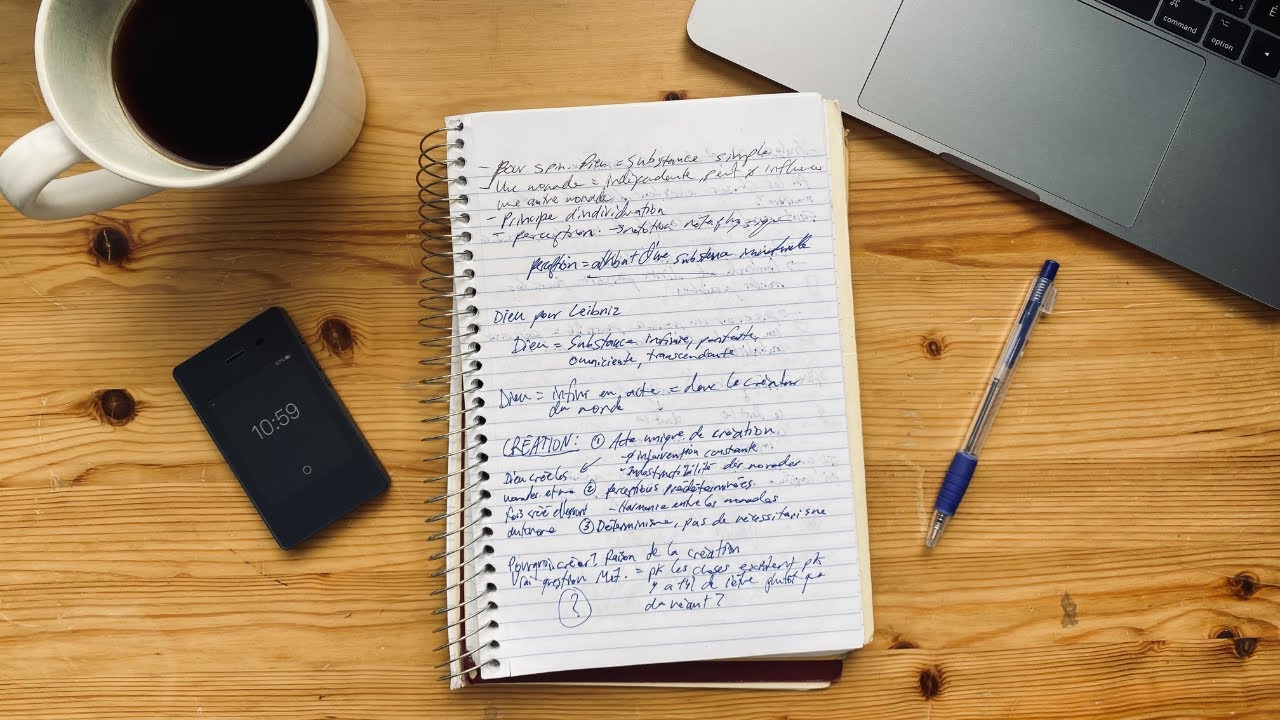 - Pour spin. Dieu = Substance simple
Une monade = indépendante, peut influencer
une autre monade
- Principe d'individuation
- perception → notion métaphysique
= attribut d'une substance
Dieu pour Leibniz
Dieu = Substance infinie, parfaite,
omniciente, transcendante
Dieu = infini en acte = donc le créateur
du monde
CRÉATION: ① Acte unique de création
intervention constante
Dieu crée les - indestructibilité des monades
monades et une ② perceptions prédéterminées
fois créé - Harmonie entre les monades
autonome ③ Déterminisme, pas de nécessitarisme
Pourquoi créer? Raison de la création
question Mét. = pk les choses existent, pk
y a t'il de l'être plutôt que
du néant?
?
10:59
command
option